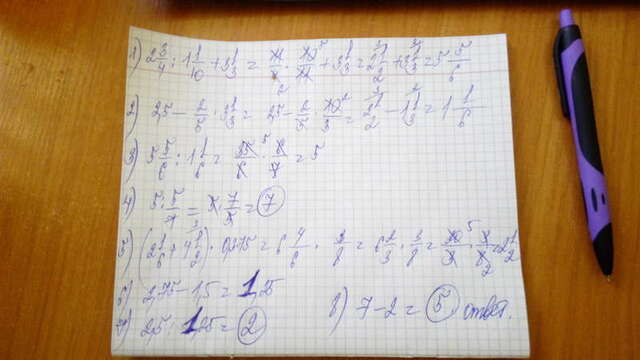 1) 2 3/4 : 1 1/10 + 3 1/3 = 11/4 · 10/11 + 3 1/3 = 2 1/2 + 3 1/3 = 5 5/6
2) 2,5 − 2/5 · 3 1/3 = 2,5 − 2/5 · 10/3 = 2 1/2 − 1 1/3 = 1 1/6
3) 5 5/6 : 1 1/6 = 35/6 · 6/7 = 5
4) 5 : 5/7 = 5 · 7/5 = 7
5) (2 1/6 + 4 1/2) · 0,375 = 6 4/6 · 3/8 = 6 2/3 · 3/8 = 20/3 · 3/8 = 2 1/2
6) 2,75 − 1,5 = 1,25
7) 2,5 : 1,25 = 2
8) 7 − 2 = 5 ответ.